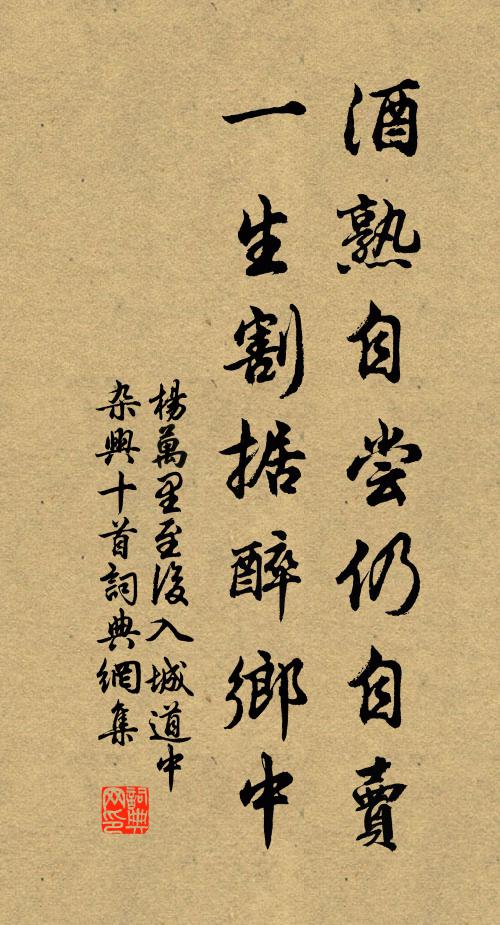 酒熟自尝仍自賣
一生割据醉鄉中
楊萬里至後入城道中
杂興十首詞典網集
詞典網印